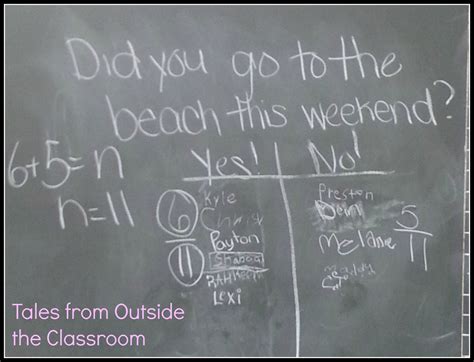 Did you go to the
beach this weekend?
6+5=n
n=11
Yes!
No!
6
11
Kyle
Chris
Payton
Lexi
Preston
Melanie
5
11
Tales from Outside
the Classroom